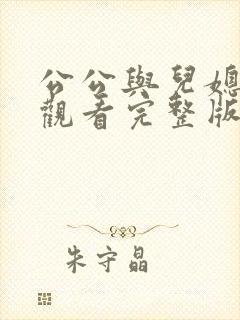 公公與兒媳
觀看完整版
朱守晶